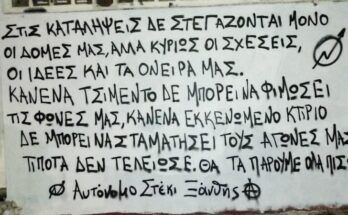 ΣΤΙΣ ΚΑΤΑΛΗΨΕΙΣ ΔΕ ΣΤΕΓΑΖΟΝΤΑΙ ΜΟΝΟ
ΟΙ ΔΟΜΕΣ ΜΑΣ, ΑΛΛΑ ΚΥΡΙΩΣ ΟΙ ΣΧΕΣΕΙΣ,
ΟΙ ΙΔΕΕΣ ΚΑΙ ΤΑ ΟΝΕΙΡΑ ΜΑΣ.
ΚΑΝΕΝΑ ΤΣΙΜΕΝΤΟ ΔΕ ΜΠΟΡΕΙ ΝΑ ΦΙΜΩΣΕΙ
ΤΙΣ ΦΩΝΕΣ ΜΑΣ, ΚΑΝΕΝΑ ΕΚΚΕΝΩΜΕΝΟ ΚΤΙΡΙΟ
ΔΕ ΜΠΟΡΕΙ ΝΑ ΣΤΑΜΑΤΗΣΕΙ ΤΟΥΣ ΑΓΩΝΕΣ ΜΑΣ
ΤΙΠΟΤΑ ΔΕΝ ΤΕΛΕΙΩΣΕ. ΘΑ ΤΑ ΠΑΡΟΥΜΕ ΟΛΑ ΠΙΣΩ
Αυτόνομο Στέκι Ξάνθης